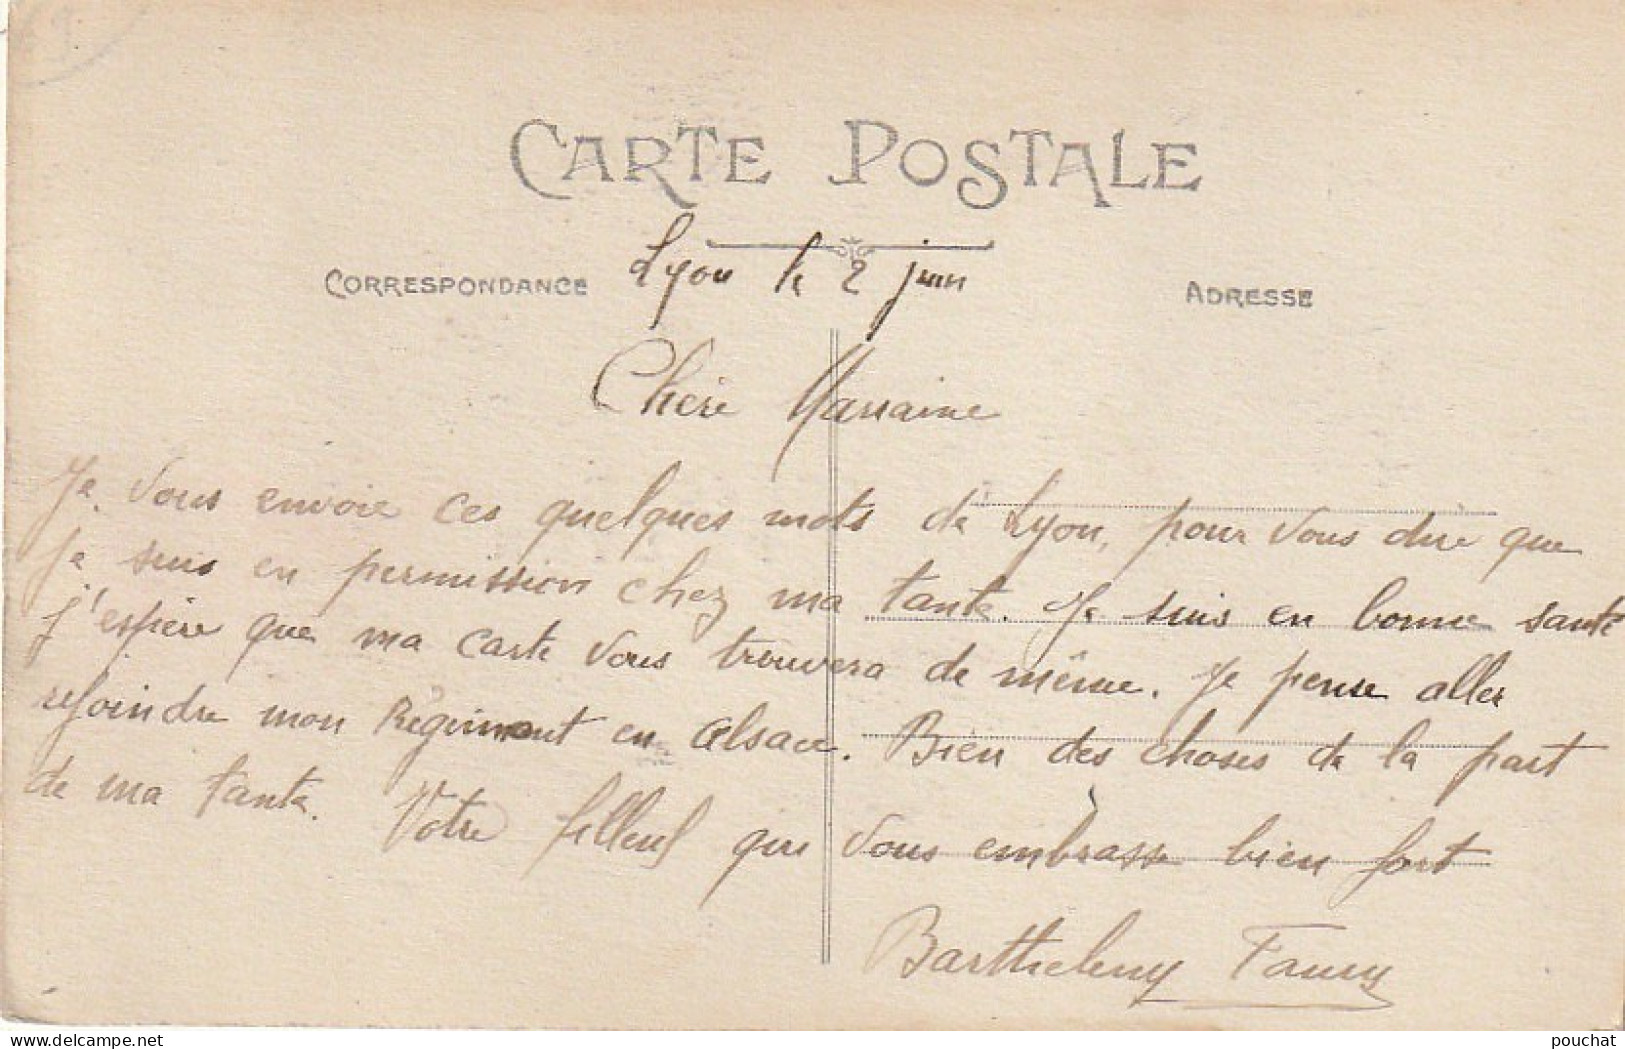 CARTE POSTALE
CORRESPONDANCE
Lyon le 2 juin
ADRESSE
Chère Marraine
Je vous envoie ces quelques mots de Lyon, pour vous dire que
je suis en permission chez ma tante. Je suis en bonne santé
j'espère que ma carte vous trouvera de même. Je pense aller
rejoindre mon Régiment en alsace. Bien des choses de la part
de ma tante. Votre filleul qui vous embrasse bien fort
Barthelemy Faury
delcampe.net
pouchat